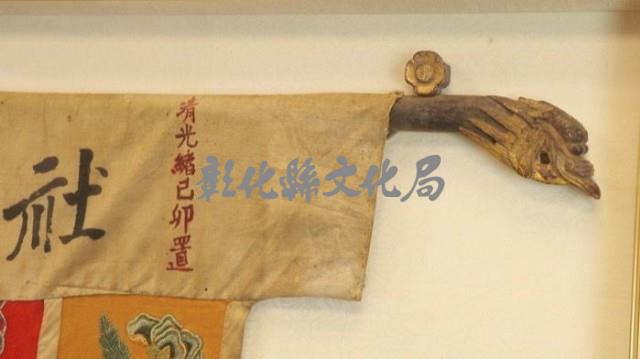 清光緒己卯置
社
彰化縣文化局